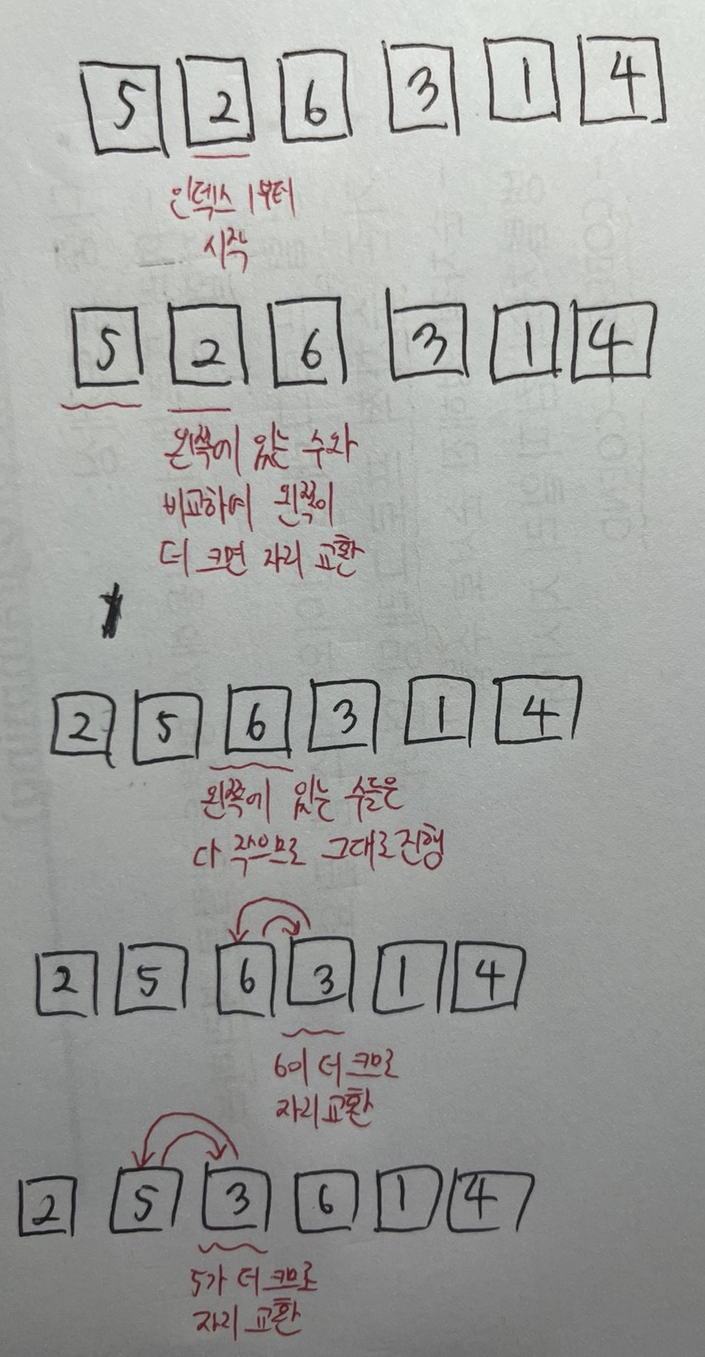 5 2 6 3 1 4
인덱스 1부터
시작
5 2 6 3 1 4
왼쪽에 있는 수와
비교하여 왼쪽이
더 크면 자리 교환
2 5 6 3 1 4
왼쪽에 있는 수들은
다 작으므로 그대로 진행
2 5 6 3 1 4
6이 더 크므로
자리 교환
2 5 3 6 1 4
5가 더 크므로
자리 교환